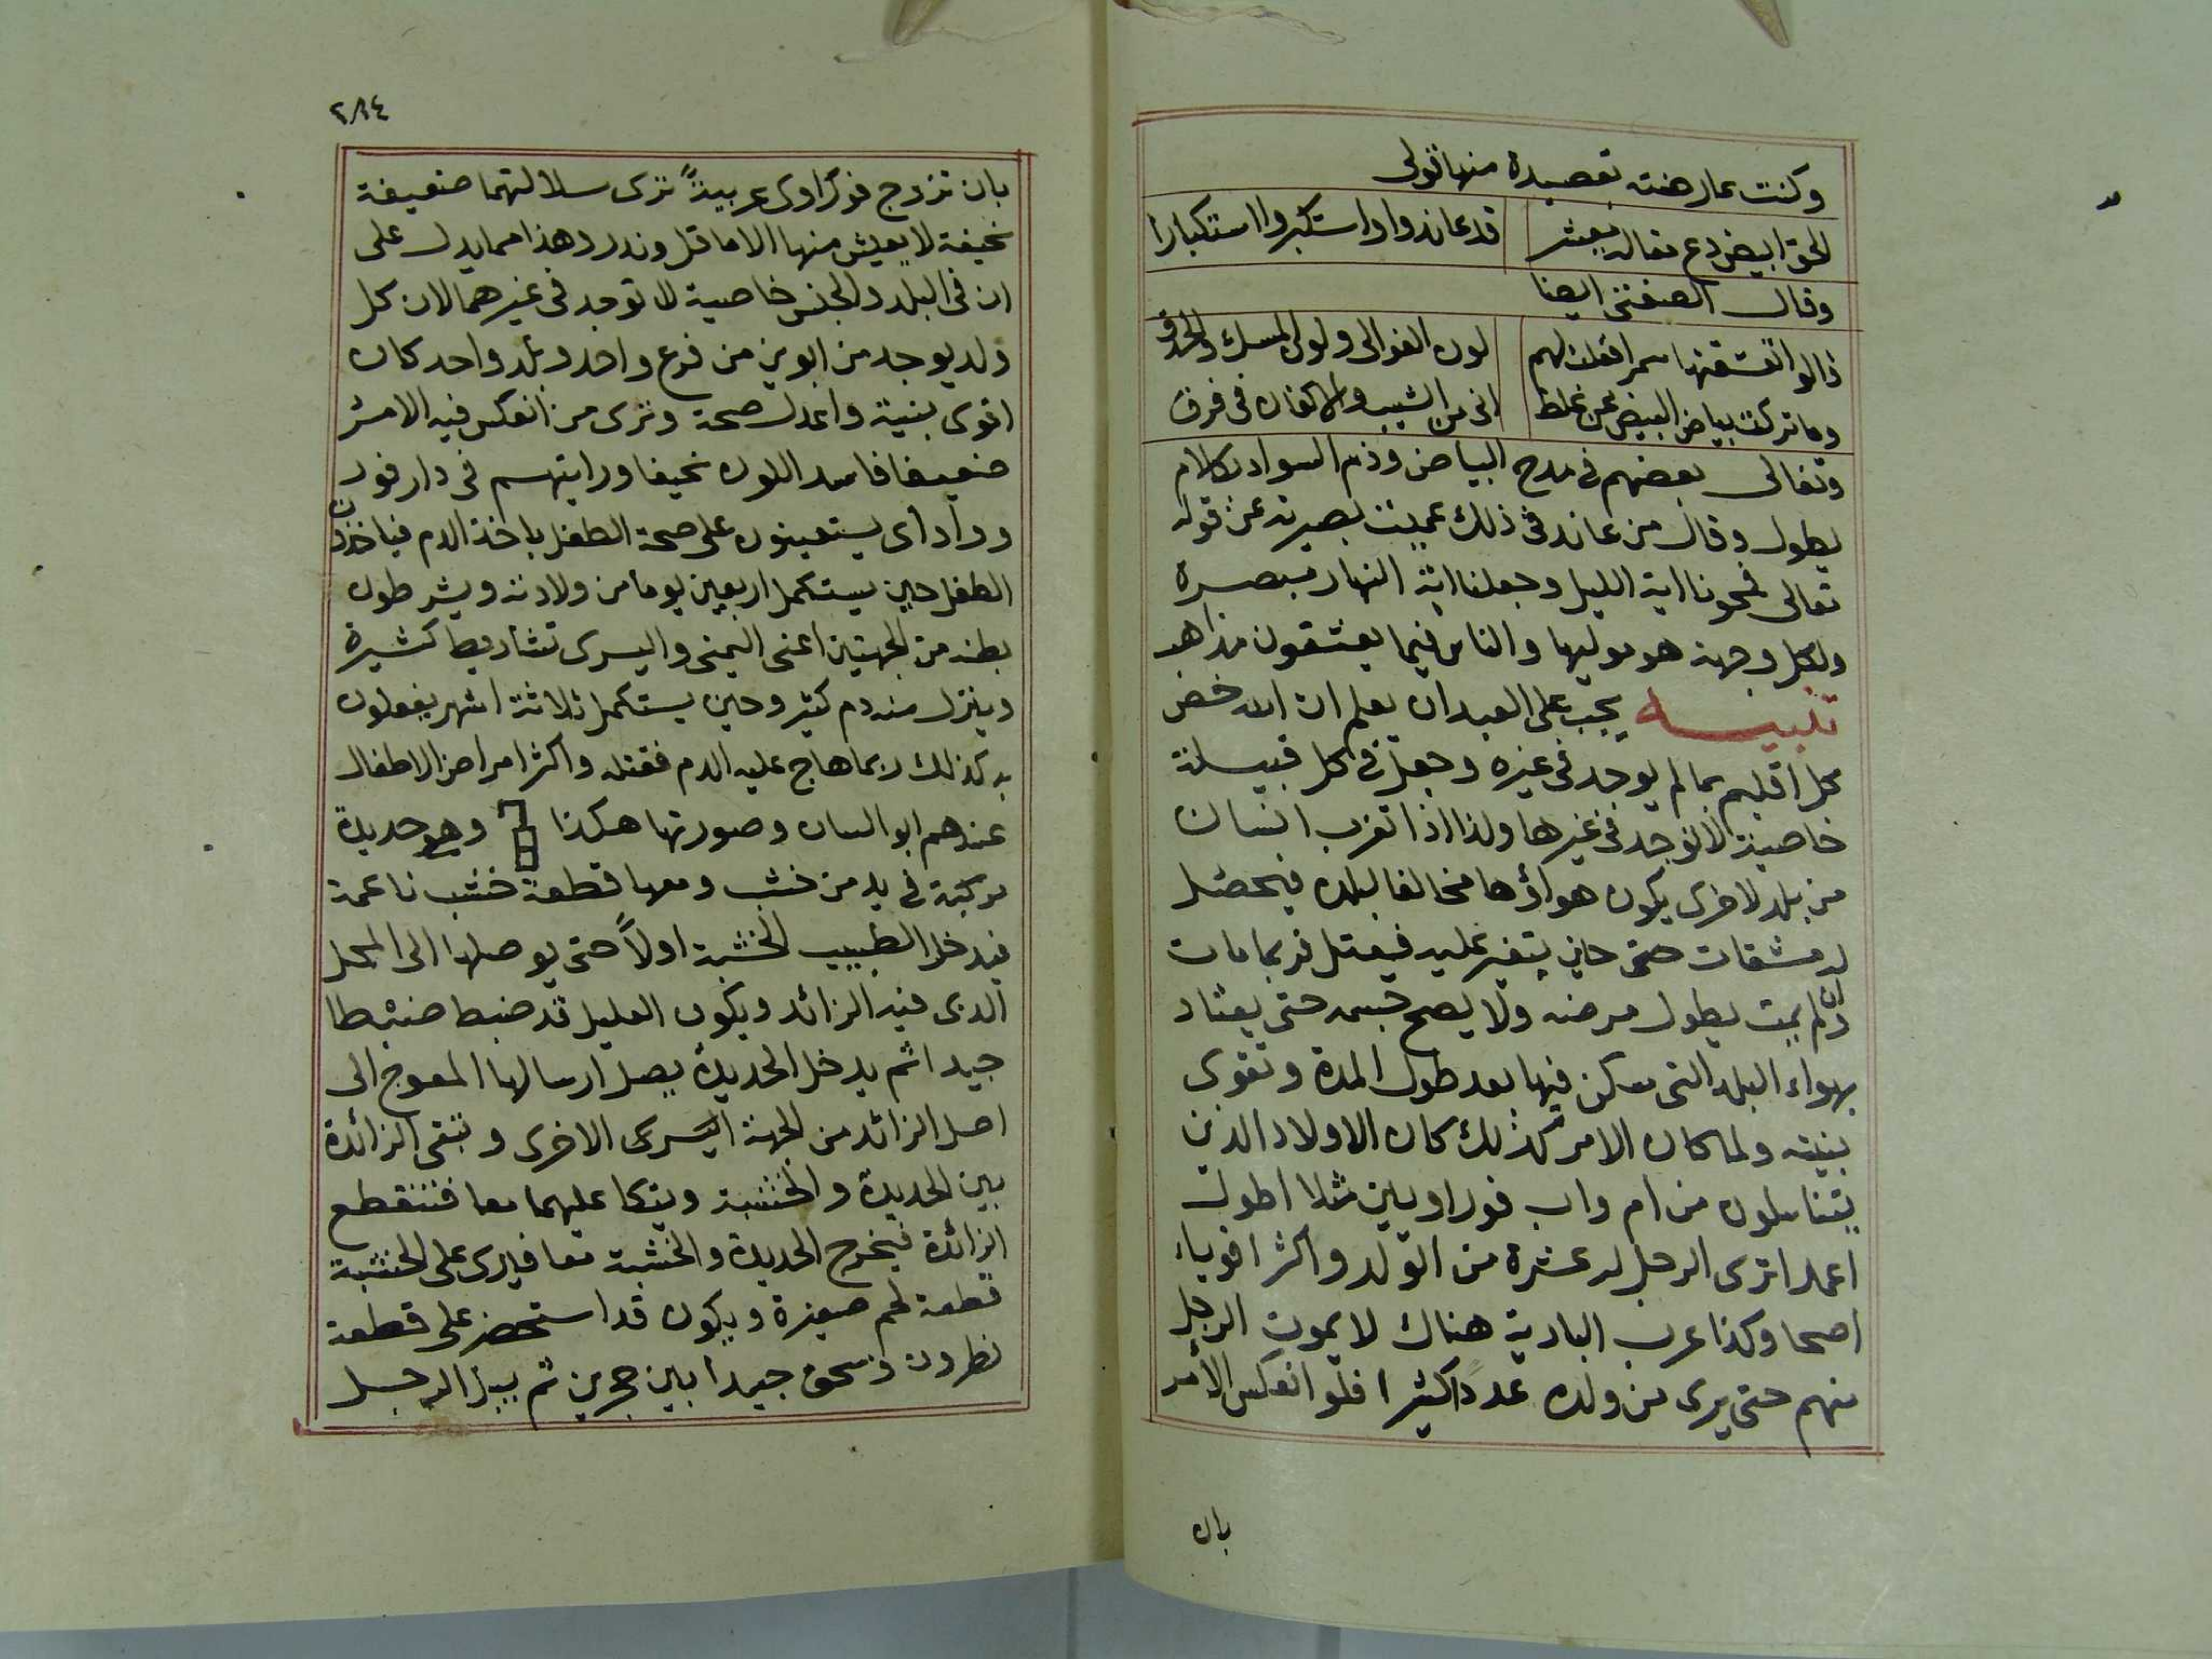 وكنت عارضته بقصيدة منها قولى
الحق ابيض دع مقالة معشر قد عاندوا واستكبروا استكبارا
وقال الصفتى ايضا
قالوا تعشقتها سمرا فقلت لهم لون الغوالى ولون المسك والحدق
وما تركت بياض البيض عن غلط انى من الشيب والاكفان فى فرق
وتغالى بعضهم فى مدح البياض وذم السواد بكلام
يطول وقال من عاند فى ذلك عميت بصيرته عن قوله
تعالى فمحونا اية الليل وجعلنا اية النهار مبصرة
ولكل وجهة هو موليها والناس فيما يعشقون مذاهب
تنبيه يجب على العبد ان يعلم ان الله خص
كل اقليم بما لم يوجد فى غيره وجعل فى كل قبيلة
خاصية لا توجد فى غيرها ولذا اذا تغرب انسان
من بلد لاخرى يكون هواؤها مخالفا لبلده فيحصل
له مشقات حتى حين يتغير عليه فيعتل فربما مات
وان لم يمت يطول مرضه ولا يصح جسمه حتى يعتاد
بهواء البلد التى سكن فيها بعد طول المدة وتقوى
بنيته ولما كان الامر كذلك كان الاولاد الذين
يتناسلون من ام واب فوراويين مثلا اطول
اعمارا ترى الرجل له عشرة من الولد واكثر اقوياء
اصحا وكذا عرب البادية هناك لا يموت الرجل
منهم حتى يرى من ولده عددا كثيرا فلو انعكس الامر
بان
٢٨٤
بان تزوج فوراوى عربيةً ترى سلالتهما ضعيفة
نحيفة لا يعيش منها الا ما قل وندر وهذا مما يدل على
ان فى البلد والجنس خاصية لا توجد فى غيرهما لان كل
ولد يوجد من ابوين من فرع واحد وبلد واحد كان
اقوى بنية واعدل صحة وترى من انعكس فيه الامر
ضعيفا فاسد اللون نحيفا ورايتهم فى دارفور
وواداى يستعينون على صحة الطفل باخذ الدم فياخذون
الطفل حين يستكمل اربعين يوما من ولادته ويشرطون
بطنه من الجهتين اعنى اليمنى واليسرى تشاريط كثيرة
وينزل منه دم كثير وحين يستكمل ثلاثة اشهر يفعلون
به كذلك ربما هاج عليه الدم فقتله واكثر امراض الاطفال
عندهم ابو اللسان وصورتها هكذا وهى حديدة
مركبة فى يد من خشب ومعها قطعة خشب ناعمة
فيدخل الطبيب الخشبة اولاً حتى يوصلها الى المحل
الذى فيه الزائد ويكون العليل قد ضبط ضبطا
جيدا ثم يدخل الحديدة يصل ارسالها المعوج الى
اصل الزائد من الجهة اليسرى الاخرى وتبقى الزائدة
بين الحديدة والخشبة ويتكا عليهما معا فتنقطع
الزائدة فيخرج الحديدة والخشبة معا فيرى على الخشبة
قطعة لحم صغيرة ويكون قد استحضر على قطعة
نطرون وسحق جيدا بين حجرين ثم يبل الرجل